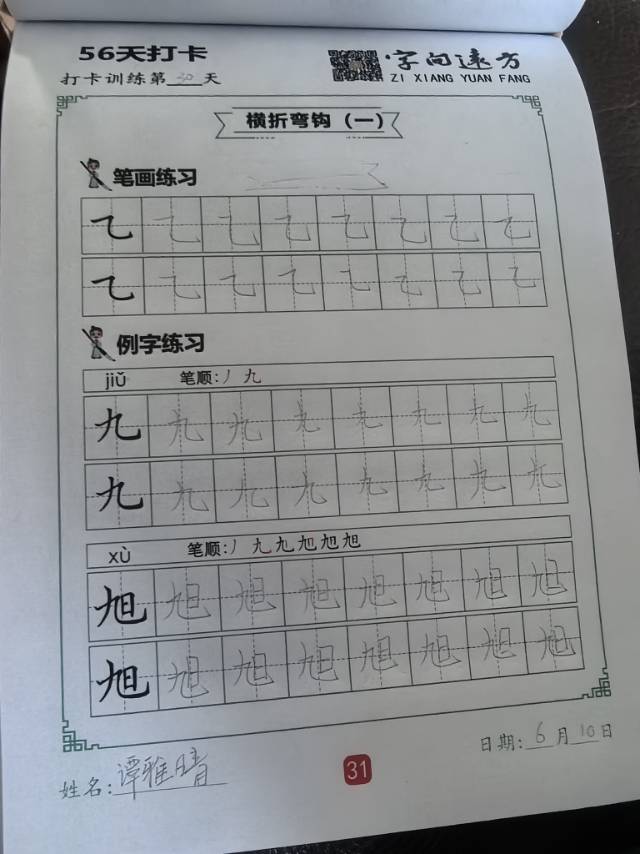 56天打卡
打卡训练第30天
字向远方
ZI XIANG YUAN FANG
横折弯钩（一）
笔画练习
乙 乙 乙 乙 乙 乙 乙 乙
乙 乙 乙 乙 乙 乙 乙 乙
例字练习
jiǔ 笔顺:丿 九
九 九 九 九 九 九 九 九
九 九 九 九 九 九 九 九
xù 笔顺:丿 九 九 旭 旭 旭
旭 旭 旭 旭 旭 旭 旭 旭
旭 旭 旭 旭 旭 旭 旭 旭
姓名:谭雅晴
31
日期:6月10日